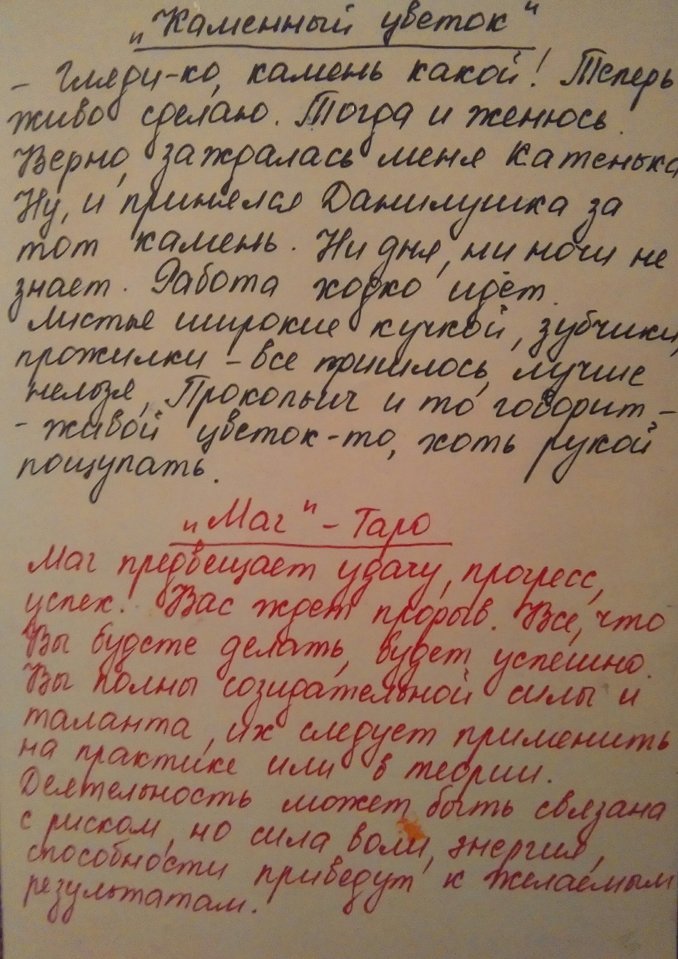 „Каменный цветок"
- Гляди-ко, камень какой! Теперь
живо сделаю. Тогда и женюсь.
Верно, заждалась меня Катенька
Ну, и принялся Данилушка за
тот камень. Ни дня, ни ночи не
знает. Работа ходко идёт.
Листье широкие кучкой, зубчики,
прожилки - все пришлось, лучше
нельзя, Прокопьич и то говорит -
- живой цветок-то, хоть рукой
пощупать.
„Маг" - Таро
Маг предвещает удачу, прогресс,
успех. Вас ждет прорыв. Все, что
Вы будете делать, будет успешно.
Вы полны созидательной силы и
таланта, их следует применить
на практике или в теории.
Деятельность может быть связана
с риском, но сила воли, энергия,
способности приведут к желаемым
результатам.